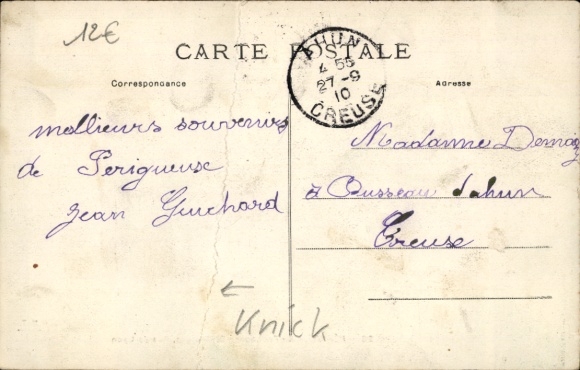 12€
CARTE POSTALE
Correspondance
Adresse
AHUN
4 55
27-9
10
CREUSE
meilleurs souvenirs
de Perigueuse
Jean Guichard
Madame
à d'ahun
Creuse
Knick